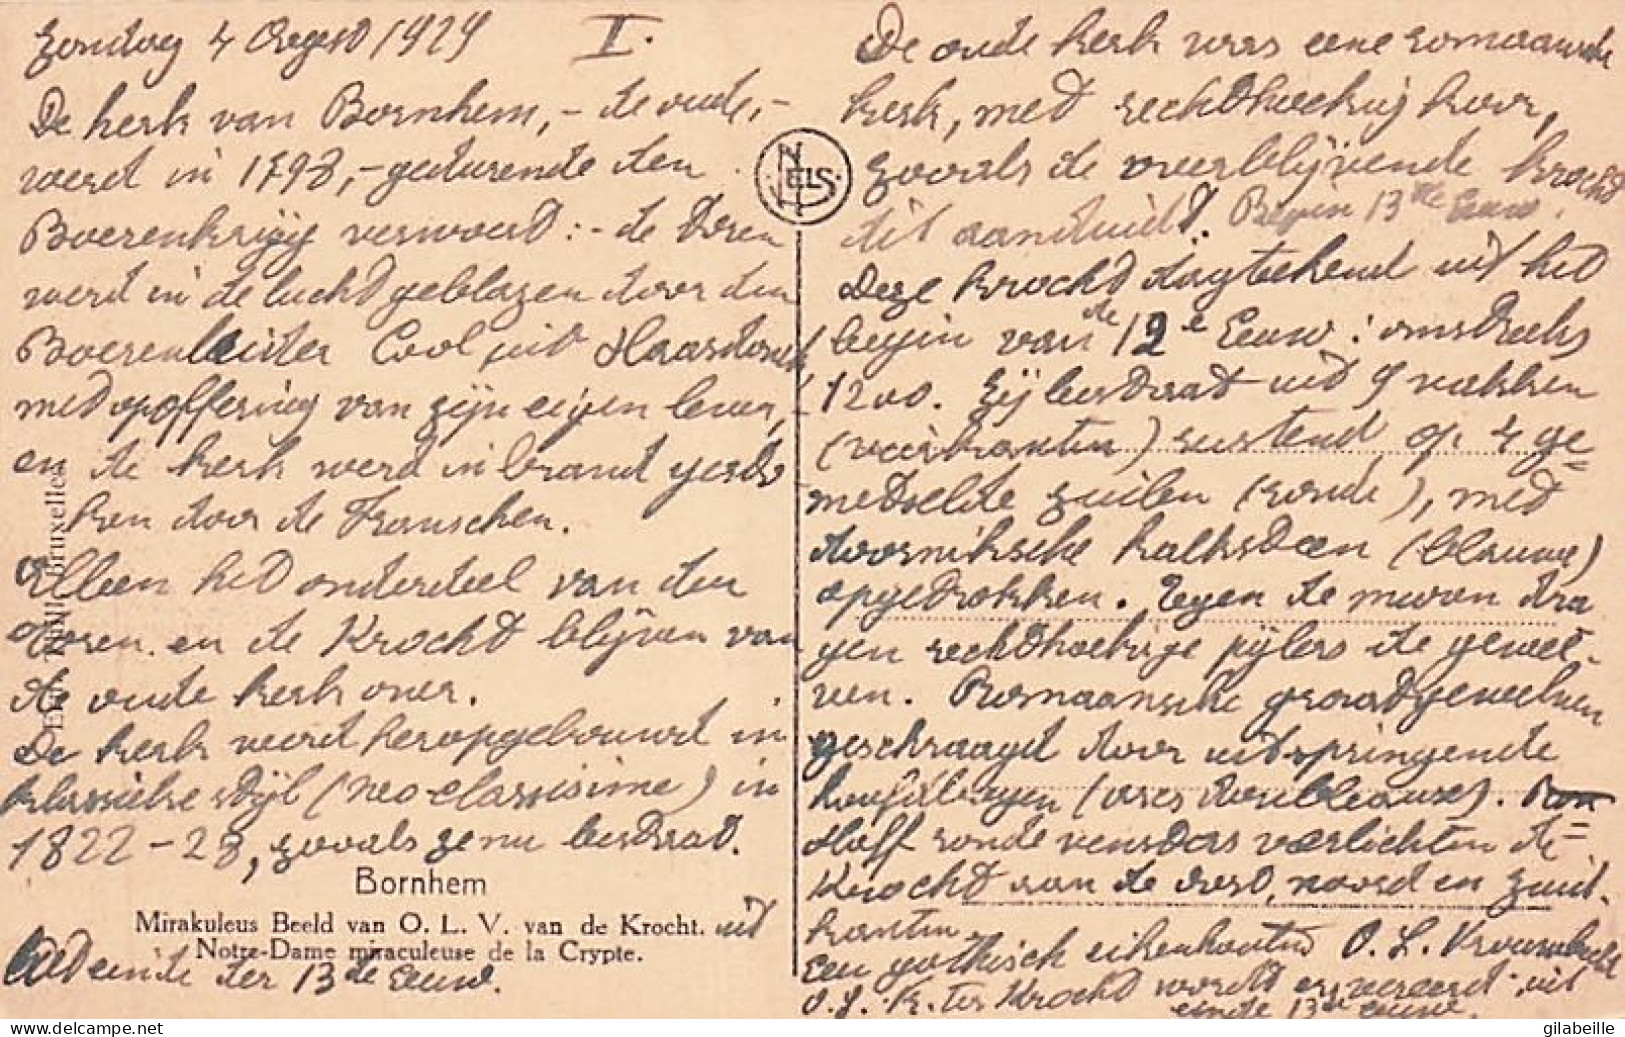 Zondag 4 Ogest 1929 II.
De kerk van Bornhem, - de oude, -
werd in 1798, - gedurende den
Boerenkrijg verwoest : - de toren
werd in de lucht geblazen door den
Boerenleider Cool, uit Haasdonk,
met opoffering van zijn eigen leven, -
en de kerk werd in brand gesto
ken door de Franschen.
Alleen het onderdeel van den
toren en de Krocht blijven van
de oude kerk over.
De kerk werd heropgebouwd in
klassieke stijl (neo-classisime) in
1822-28, zooals ze nu bestaat.
Bornhem
Mirakuleus Beeld van O. L. V. van de Krocht. uit
Notre-Dame miraculeuse de la Crypte.
het einde der 13de Eeuw.
Bruxelles
NELS
De oude kerk was eene romaansche
kerk, met rechthoekig koor,
zooals de overblijvende krocht
dit aanduidt. Begin 13de Eeuw.
Deze krocht dagteekend uit het
begin van de 12e Eeuw : omstreeks
1200. Zij bestaat uit 9 vakken
(vierkanten) rustend op 4 ge=
metselde zuilen (ronde), met
doorniksche kalksteen (blauwe)
opgetrokken. Tegen de muren dra
gen rechthoekige pijlers de gewel-
ven. Romaansche graatgewelven
geschraagd door uitspringende
(arcs doubleaux).
Half ronde vensters verlichten de=
Krocht van de oost, noord en zuid-
kanten.
Een gothisch eikenhouten O. L. Vrouwebeeld
O. L. Vr. ter Krocht wordt er vereerd : uit
einde 13de eeuw.
gilabeille
www.delcampe.net